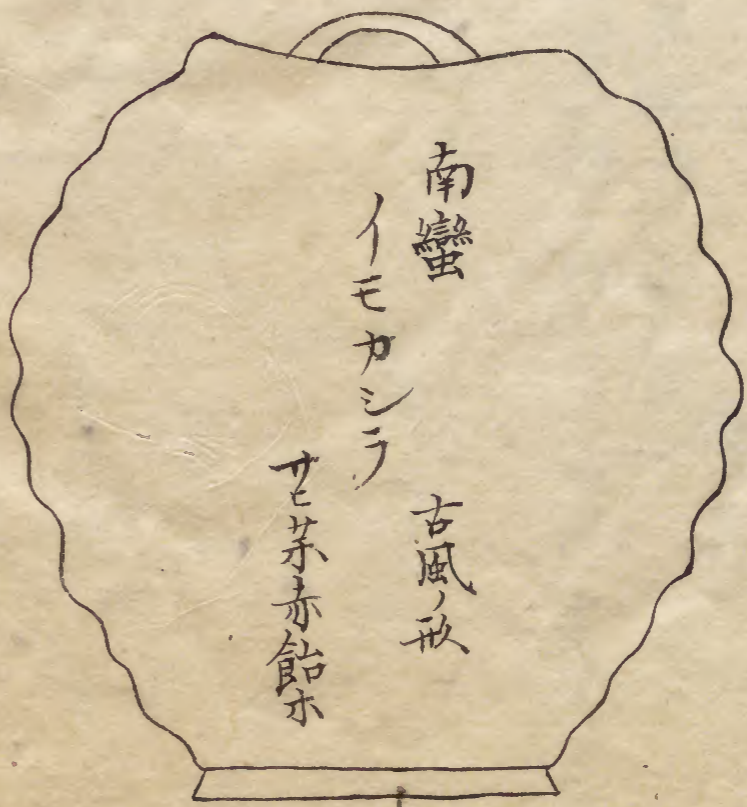 南蠻
イモカシラ
古風ノ形
サヒ茶赤飴ホ